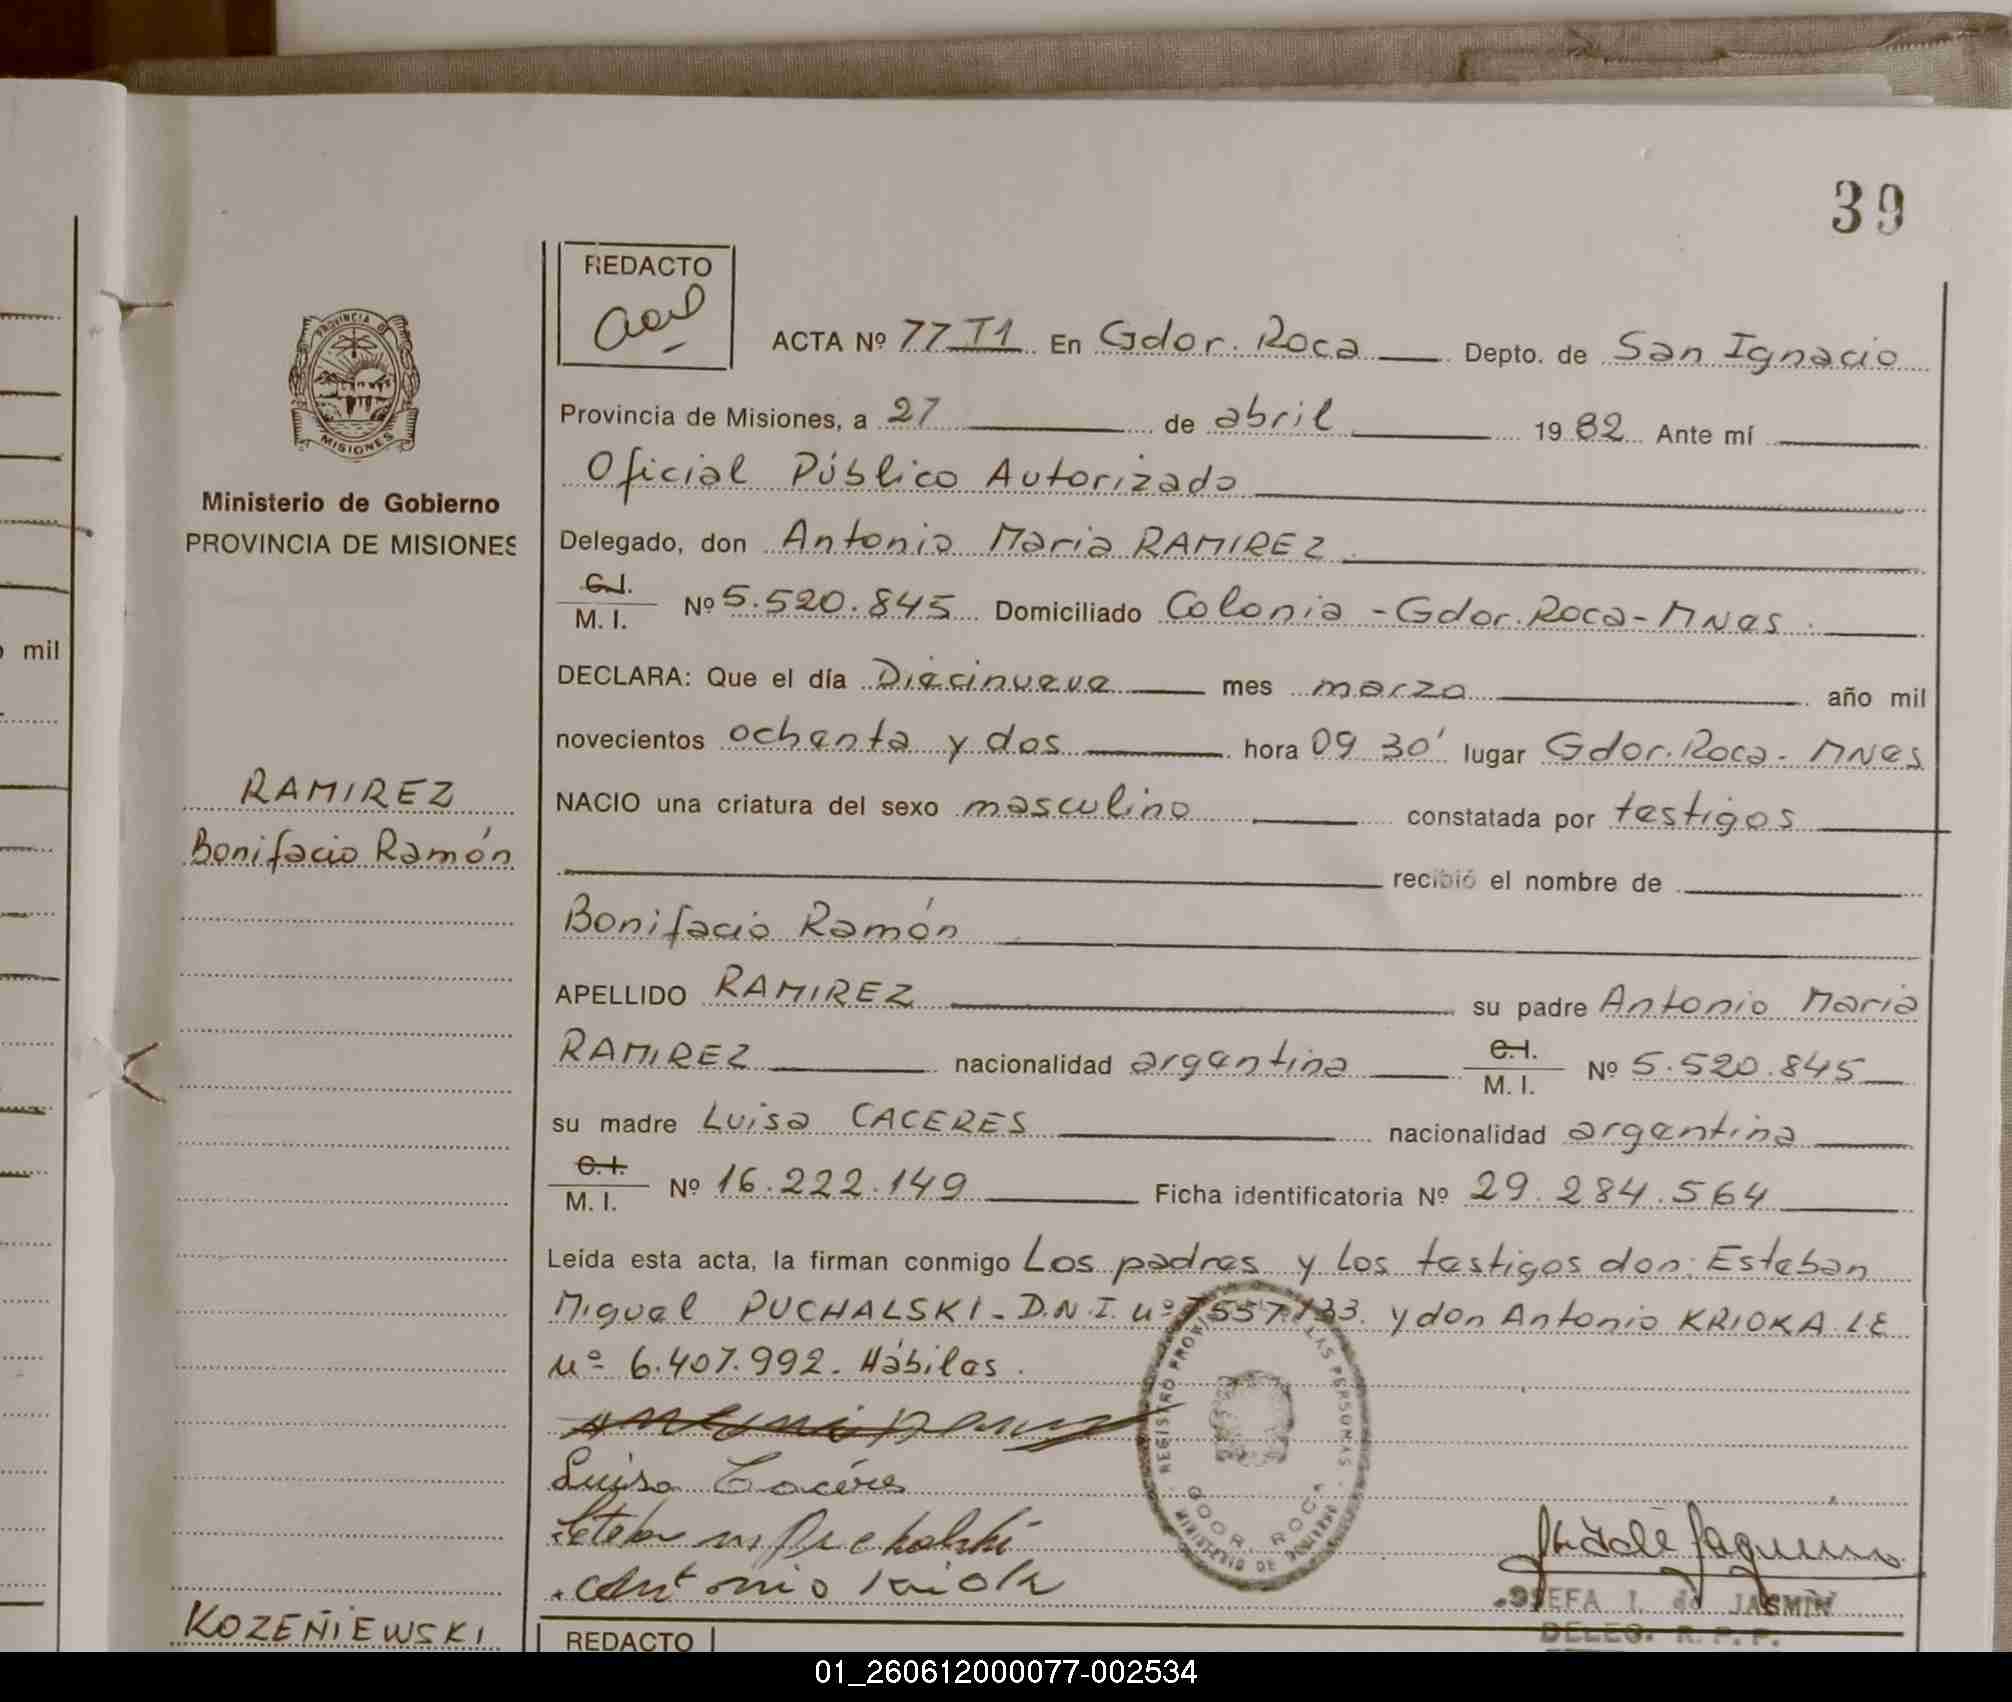 39
REDACTO
ACTA Nº 77 T1 En Gdor. Roca Depto. de San Ignacio
PROVINCIA DE
MISIONES
Provincia de Misiones, a 27 de abril 1982 Ante mí
Oficial Público Autorizado
Ministerio de Gobierno
PROVINCIA DE MISIONES
Delegado, don Antonio Maria RAMIREZ
C.I.
M. I. Nº 5.520.845 Domiciliado Colonia - Gdor. Roca - MNes.
mil
DECLARA: Que el día Diecinueve mes marzo año mil
novecientos ochenta y dos hora 09 30' lugar Gdor. Roca - MNes
RAMIREZ
Bonifacio Ramón
NACIO una criatura del sexo masculino constatada por testigos
recibió el nombre de
Bonifacio Ramón
APELLIDO RAMIREZ su padre Antonio Maria
RAMIREZ nacionalidad argentina C.I. M. I. Nº 5.520.845
su madre Luisa CACERES nacionalidad argentina
C.I.
M. I. Nº 16.222.149 Ficha identificatoria Nº 29.284.564
Leída esta acta, la firman conmigo Los padres y los testigos don: Esteban
Miguel PUCHALSKI - D.N.I. nº 7557133. y don Antonio KRIOKA LE
nº 6.407.992. Hábiles.
REGISTRO PROVINCIAL DE LAS PERSONAS
GDOR. ROCA
MINISTERIO DE GOBIERNO
Luisa Cacéres
Esteban M Puchalski
Antonio
JOSEFA I. de JASMIN
DELEG. R. P. P.
KOZEÑIEWSKI
REDACTO
01_260612000077-002534